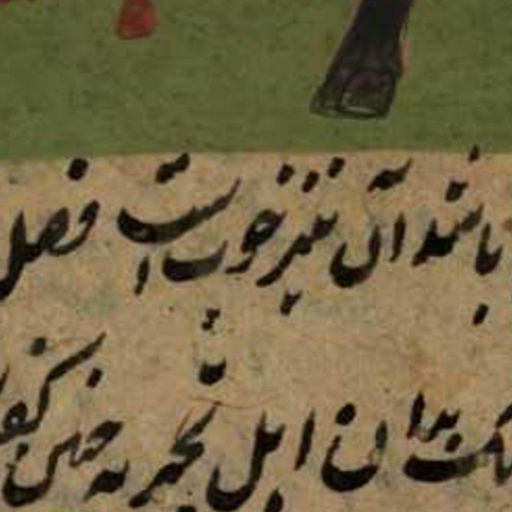 باشد آن نیز خوب است فصل
بدان اهل تجربه چنین